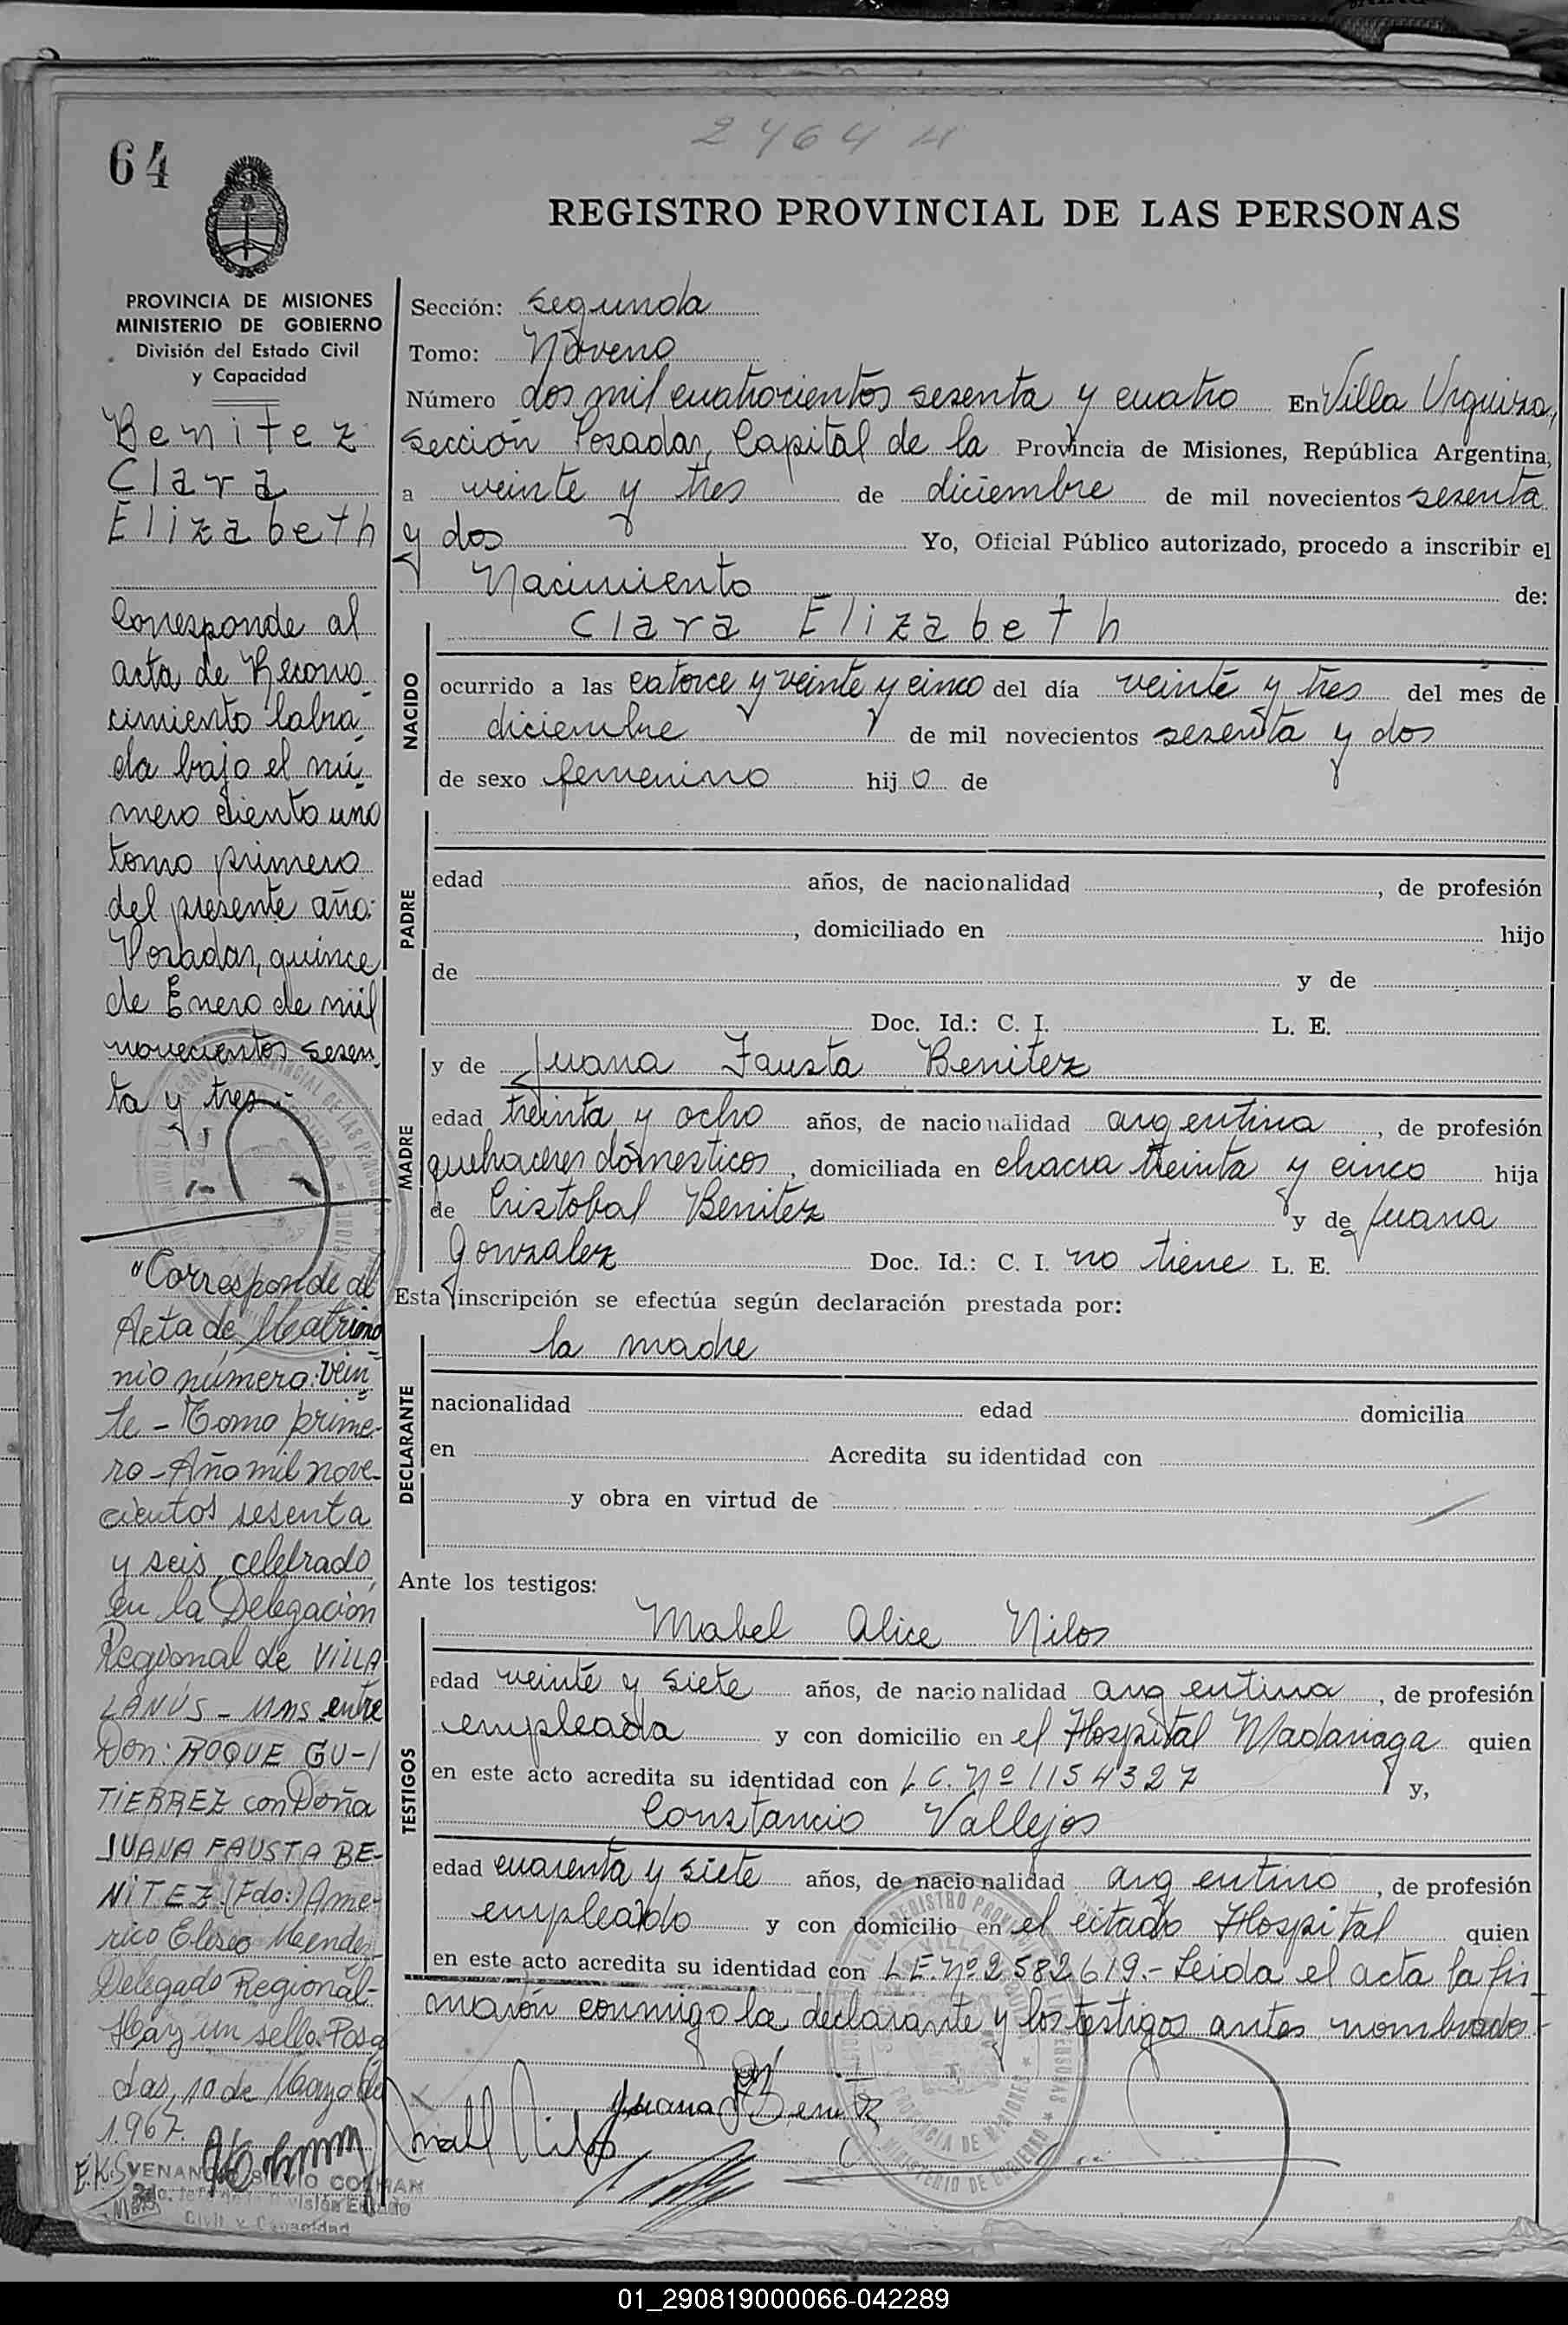 2464 H
64
REGISTRO PROVINCIAL DE LAS PERSONAS
PROVINCIA DE MISIONES
MINISTERIO DE GOBIERNO
División del Estado Civil
y Capacidad
Benitez
Clara
Elizabeth
Corresponde al
acta de Recono
cimiento labra
da bajo el nú
mero ciento uno
tomo primero
del presente año.
Posadas, quince
de Enero de mil
novecientos sesen
ta y tres.-
"Corresponde al
Acta de Matrimo
nio número: vein
te - Tomo prime-
ro - Año mil nove-
cientos sesenta
y seis, celebrado
en la Delegación
Regional de VILLA
LANÚS - Mns entre
Don: ROQUE GU-
TIERREZ con Doña
JUANA FAUSTA BE-
NITEZ (Fdo:) Ame-
rico Eliseo Mendez-
Delegado Regional-
Hay un sello. Posa
das, 10 de Marzo de
1967.
Civil y Capacidad
Sección: segunda
Tomo: Noveno
Número dos mil cuatrocientos sesenta y cuatro En Villa Urquiza,
sección Posadas, Capital de la Provincia de Misiones, República Argentina,
a veinte y tres de diciembre de mil novecientos sesenta
y dos Yo, Oficial Público autorizado, procedo a inscribir el
Nacimiento de:
Clara Elizabeth
NACIDO
ocurrido a las catorce y veinte y cinco del día veinte y tres del mes de
diciembre de mil novecientos sesenta y dos
de sexo femenino hijo de
PADRE
edad años, de nacionalidad , de profesión
, domiciliado en hijo
de y de
Doc. Id.: C. I. L. E.
MADRE
y de Juana Fausta Benitez
edad treinta y ocho años, de nacionalidad argentina , de profesión
quehaceres domesticos , domiciliada en chacra treinta y cinco hija
de Cristobal Benitez y de Juana
Gonzalez Doc. Id.: C. I. no tiene L. E.
Esta inscripción se efectúa según declaración prestada por:
la madre
DECLARANTE
nacionalidad edad domicilia
en Acredita su identidad con
y obra en virtud de
Ante los testigos:
Mabel Alice Nilos
TESTIGOS
edad veinte y siete años, de nacionalidad argentina , de profesión
empleada y con domicilio en el Hospital Madariaga quien
en este acto acredita su identidad con L.C. Nº 1154327 y,
Constancio Vallejos
edad cuarenta y siete años, de nacionalidad argentino , de profesión
empleado y con domicilio en el citado Hospital quien
en este acto acredita su identidad con L.E. Nº 2582619.- Leida el acta la fir
marón conmigo la declarante y los testigos antes nombrados-
Juana F Benitez
01_290819000066-042289